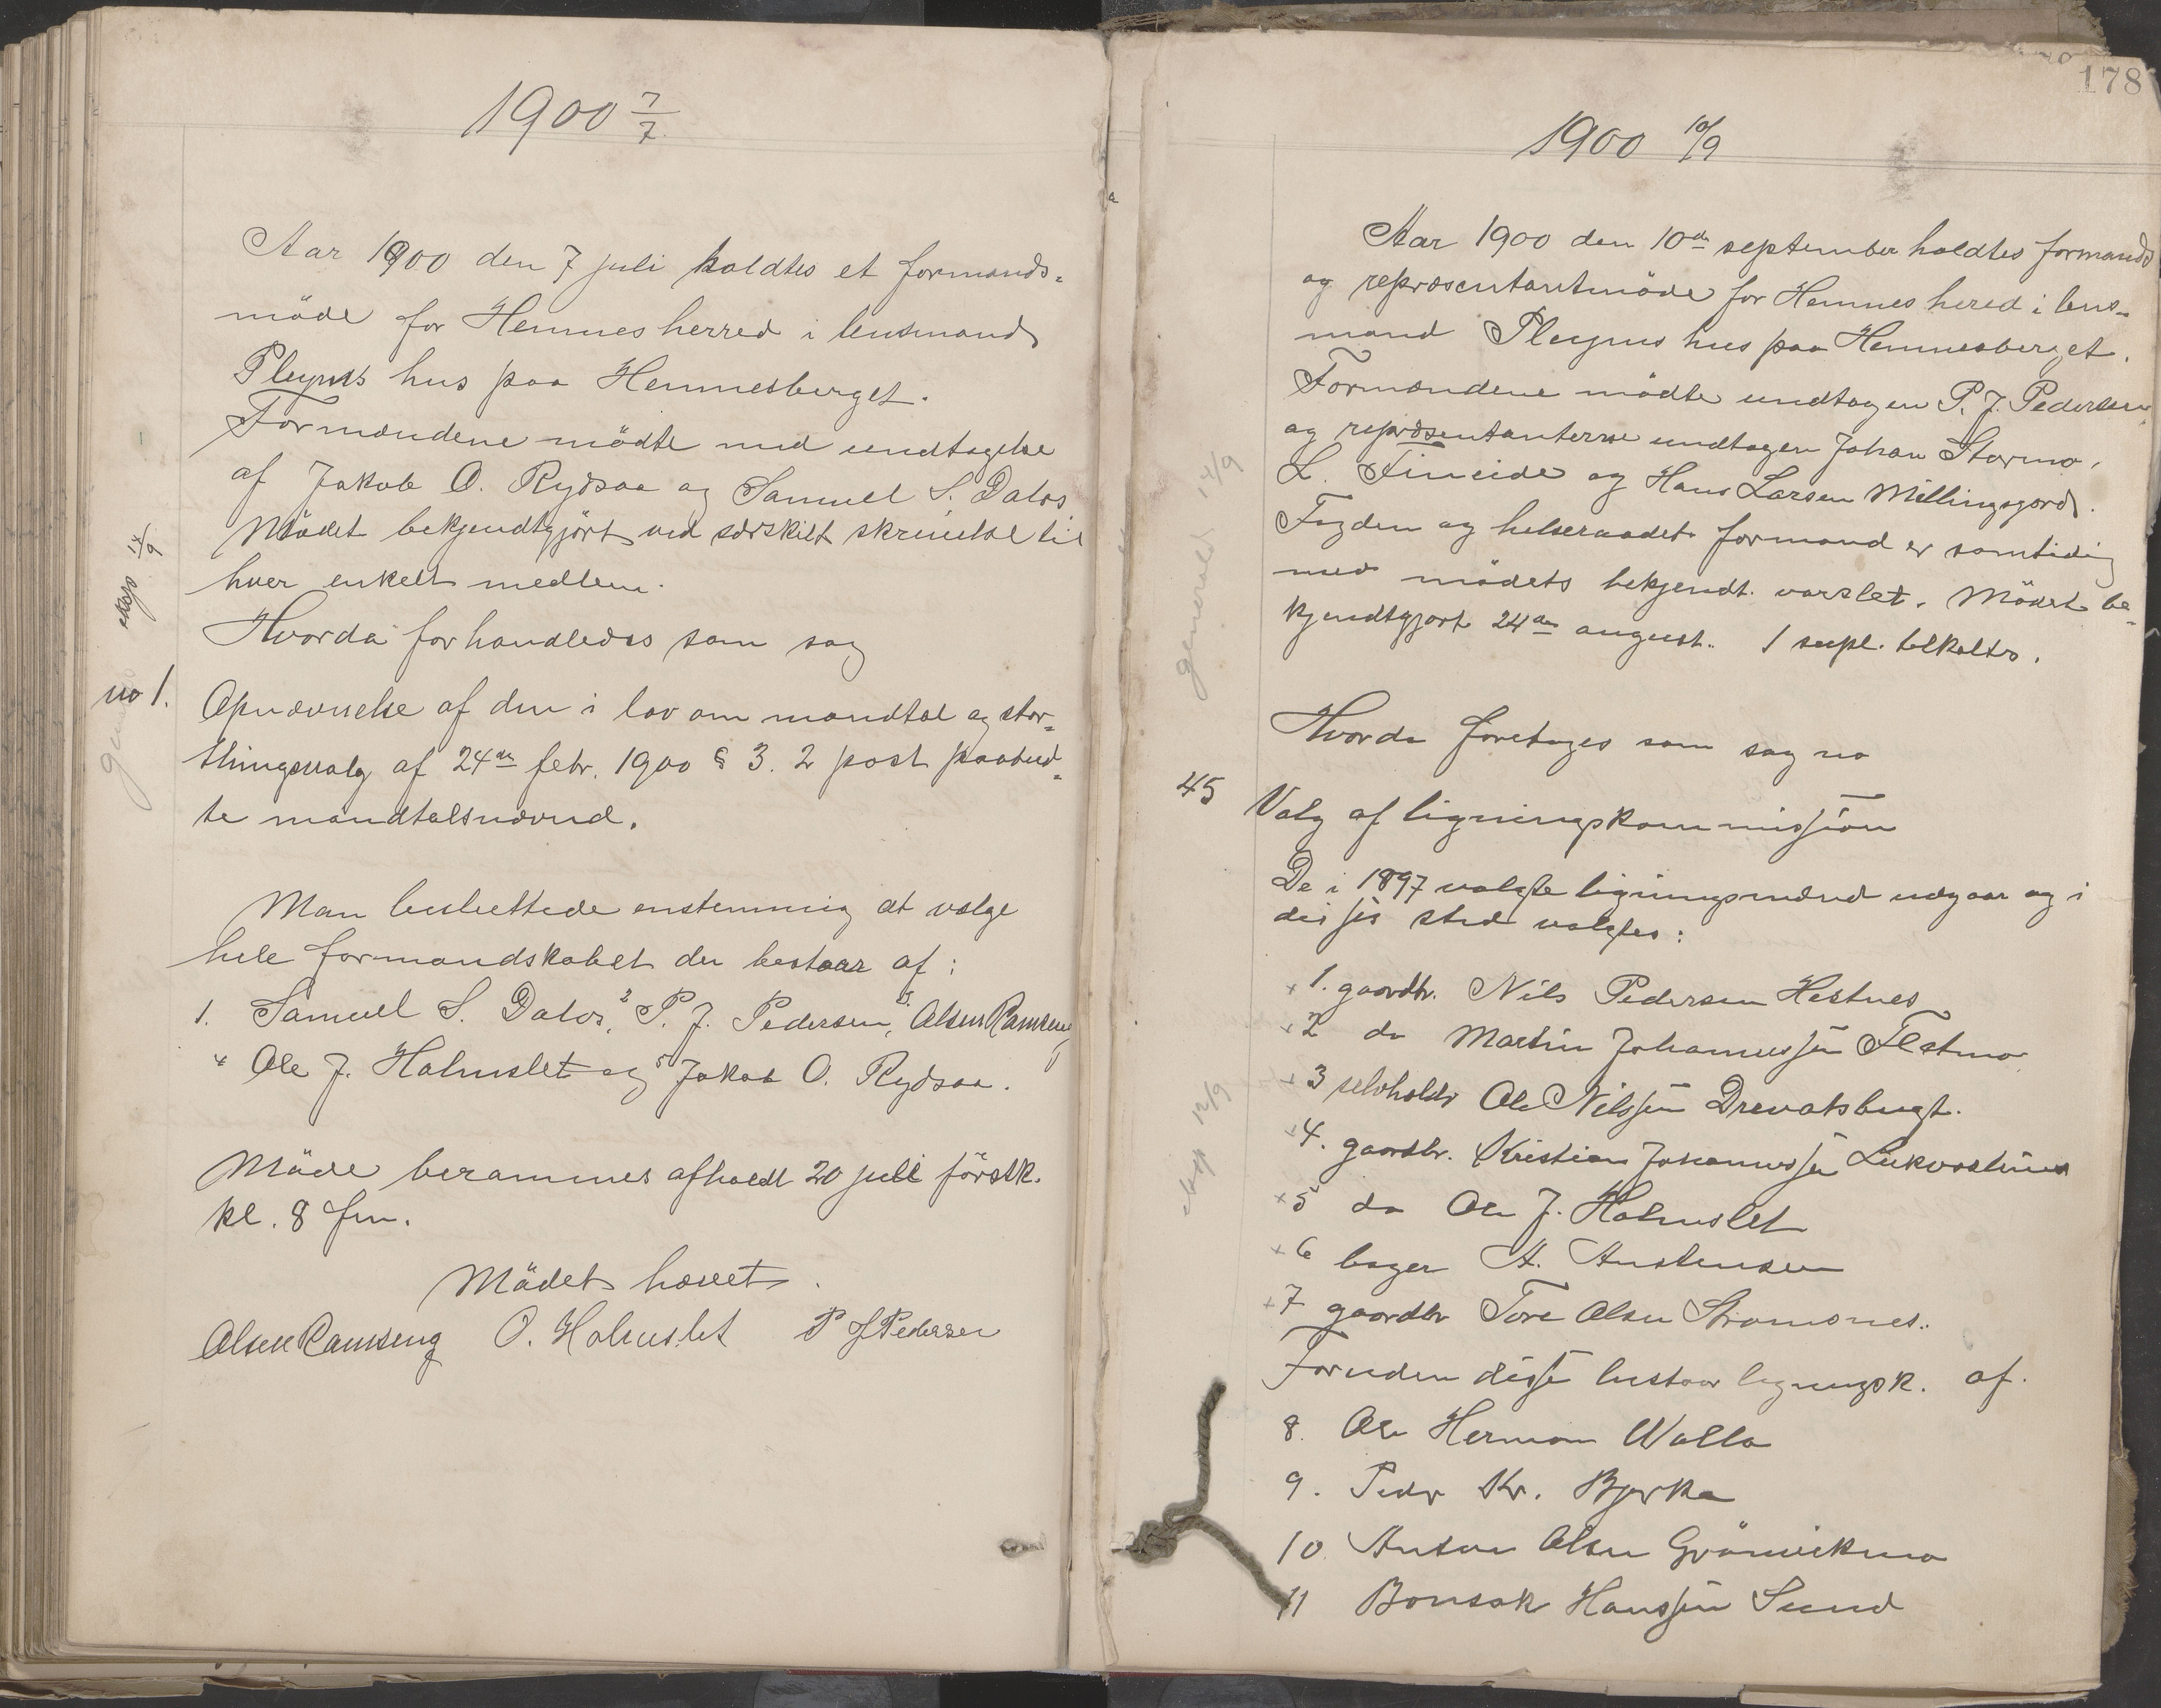 1900 7/7
Aar 1900 den 7 juli holdtes et formands-
möde for Hemnes herred i lensmand
Pleyms hus paa Hemnesberget.
Formændene mödte med undtagelse
af Jakob O. Rydsaa og Samuel S. Dalos
Mödet bekjendtgjört ved særskilt skrivelse til
hver enkelt medlem.
Hvorda forhandledes som sag
no 1.
Opnævnelse af den i lov om mandtal og stor-
thingsvalg af 24de febr. 1900 § 3. 2 post paabud-
te mandtalsnævnd.
Man besluttede enstemmig at vælge
hele formandskabet der bestaar af:
1. Samuel S. Dalos, 2 P. J. Pedersen, 3. Olsen Ramseng
4 Ole J. Holmslet og 5 Jakob O. Rydsaa.
Möde berammes afholdt 20 juli förstk.
kl. 8 fm.
Mödet hævet.
Olsen Ramseng O. Holmslet P J Pedersen
eksp 14/9
178
1900 10/9
Aar 1900 den 10de september holdtes formands
og repræsentantmöde for Hemnes hered i lens-
mand Pleyms hus paa Hemnesberget.
Formændene mödte undtagen P. J. Pedersen
og repræsentanterne undtagen Johan Stormo,
L. Fineide og Hans Larsen Millingsjord.
Fogden og helseraadets formand er samtidig
med mödets bekjendt. varslet. Mödet be-
kjendtgjort 24de august. 1 supl. tilkaltes.
Hvorda foretages som sag no
45 Valg af ligningskommission
De i 1897 valgte ligningsmænd udgaar og i
disses sted valgtes:
x 1. gaardbr. Nils Pedersen Hestnes
x 2 do Martin Johannessen Flatmo
x 3 selvholdr Ole Nilssen Drevatsbugt.
x 4. gaardbr. Kristian Johannessen
x 5 do Ole J. Holmslet
x 6 bager A. Austensen
x 7 gaardbr Tore Olsen Stromsnes.
Foruden disse bestaar ligningsk. af.
8. Ole Herman Valla
9. Peder Kr. Bjerka
10. Anton Olsen Grönvikmo
11 Bonsak Hanssen Sund
generalt 12/9
eksp 12/9